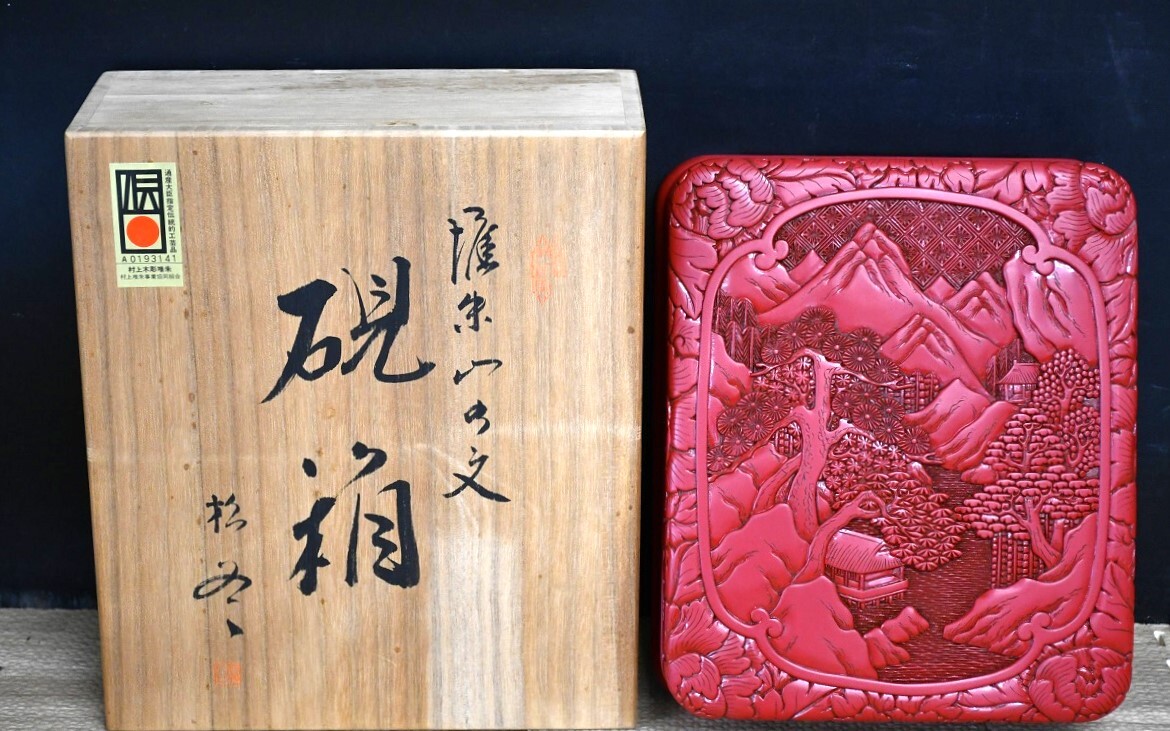 堆朱山水文
硯箱
通産大臣指定伝統的工芸品
伝
A0193141
村上木彫堆朱
村上堆朱事業協同組合